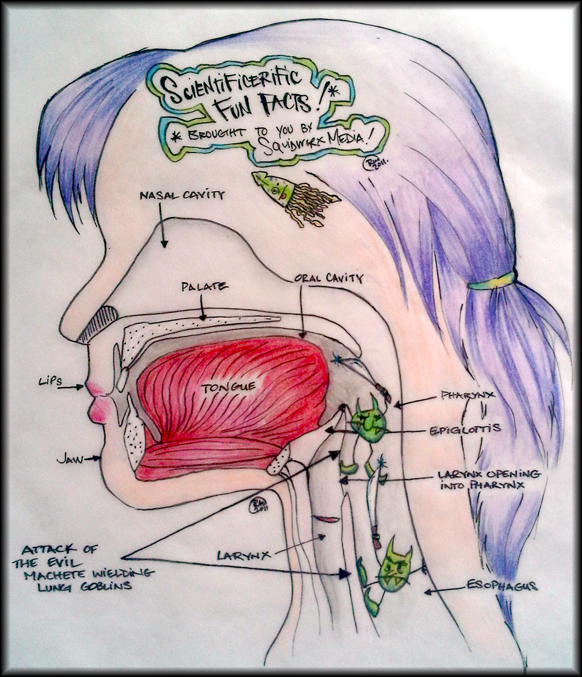 SCIENTIFICERIFIC
FUN FACTS!*
* BROUGHT TO YOU BY
SQUIDWRX MEDIA!
2011.
NASAL CAVITY
PALATE
ORAL CAVITY
LIPS
TONGUE
PHARYNX
EPIGLOTTIS
JAW
LARYNX OPENING
INTO PHARYNX
2011
ATTACK OF
THE EVIL
MACHETE WIELDING
LUNG GOBLINS
LARYNX
ESOPHAGUS